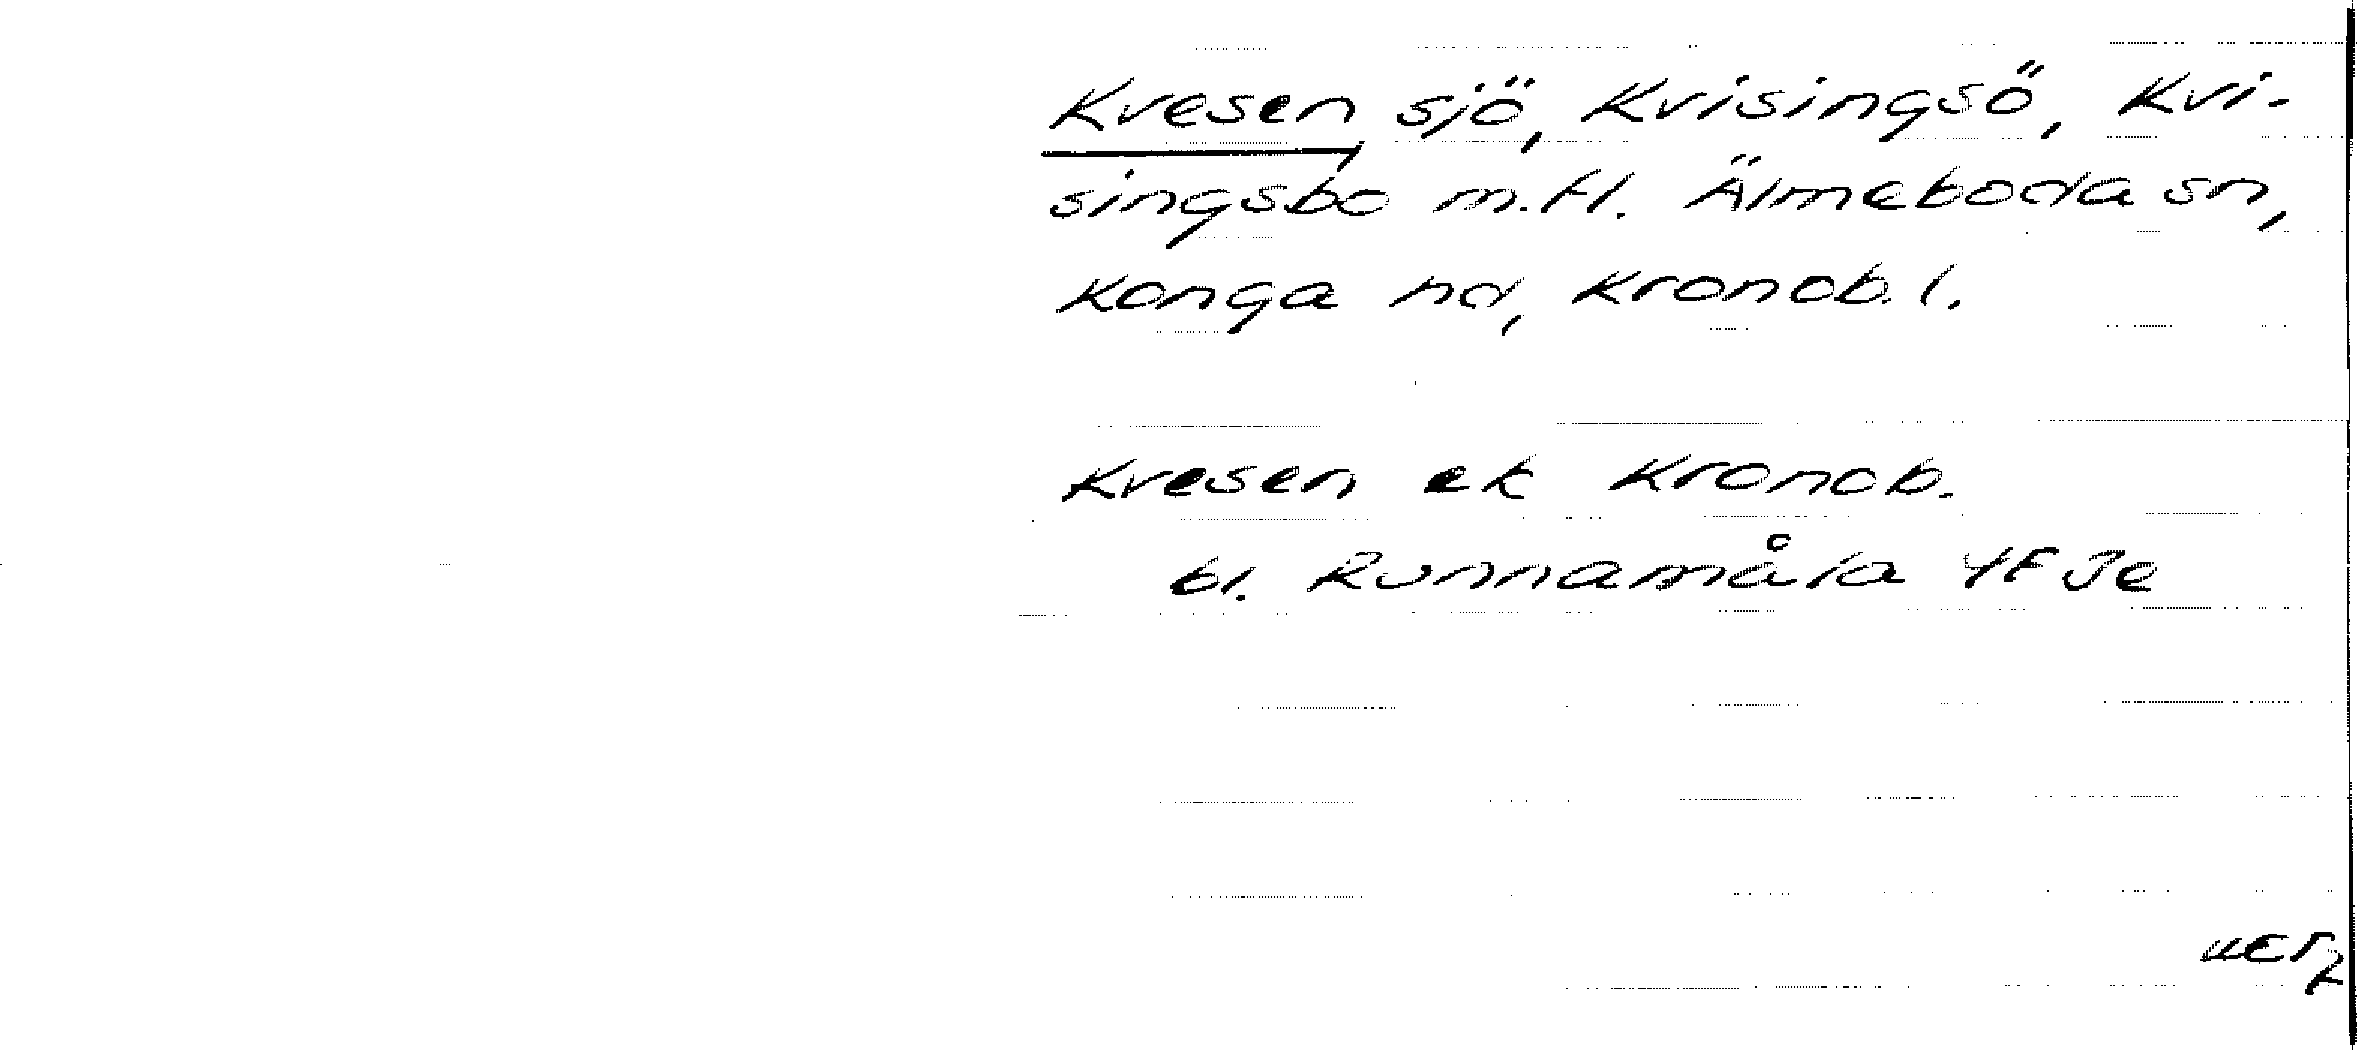 Kvesen, sjö, Kvisingsö, Kvi-
singsbo m.fl. Älmeboda sn,
Konga hd, Kronob. l.
Kvesen ek Kronob.
bl. Runnamåla 4F Je